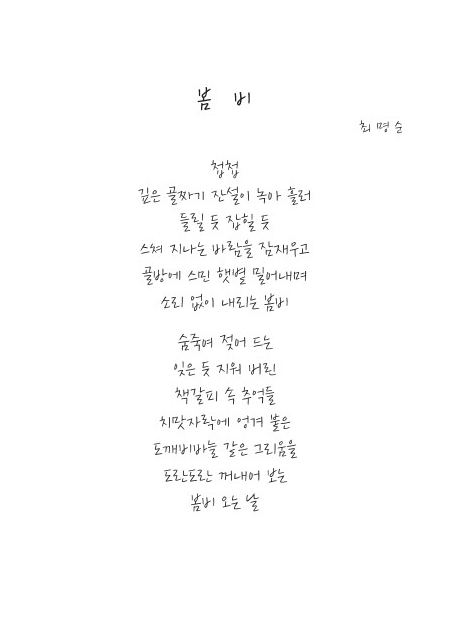 봄 비
최명순
첩첩
깊은 골짜기 잔설이 녹아 흘러
들릴 듯 잡힐 듯
스쳐 지나는 바람을 잠재우고
골방에 스민 햇볕 밀어내며
소리 없이 내리는 봄비
숨죽여 젖어 드는
잊은 듯 지워 버린
책갈피 속 추억들
치맛자락에 엉겨 붙은
도깨비바늘 같은 그리움을
도란도란 꺼내어 보는
봄비 오는 날